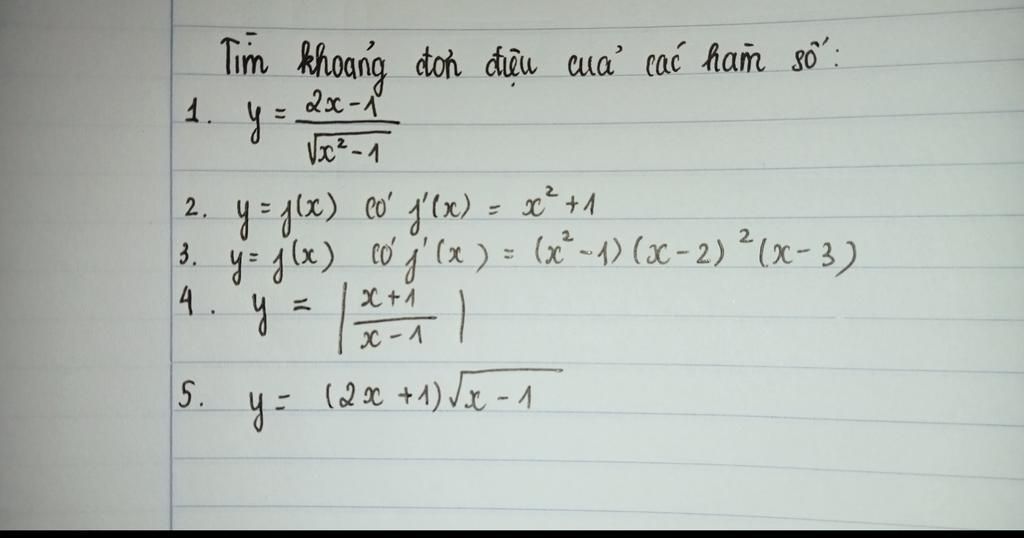 Tìm khoảng đơn điệu của các hàm số:
1. y = (2x-1)/(√(x²-1))
2. y = f(x) có f'(x) = x² + 1
3. y = f(x) có f'(x) = (x² - 1)(x - 2)²(x - 3)
4. y = |(x+1)/(x-1)|
5. y = (2x + 1)√(x - 1)